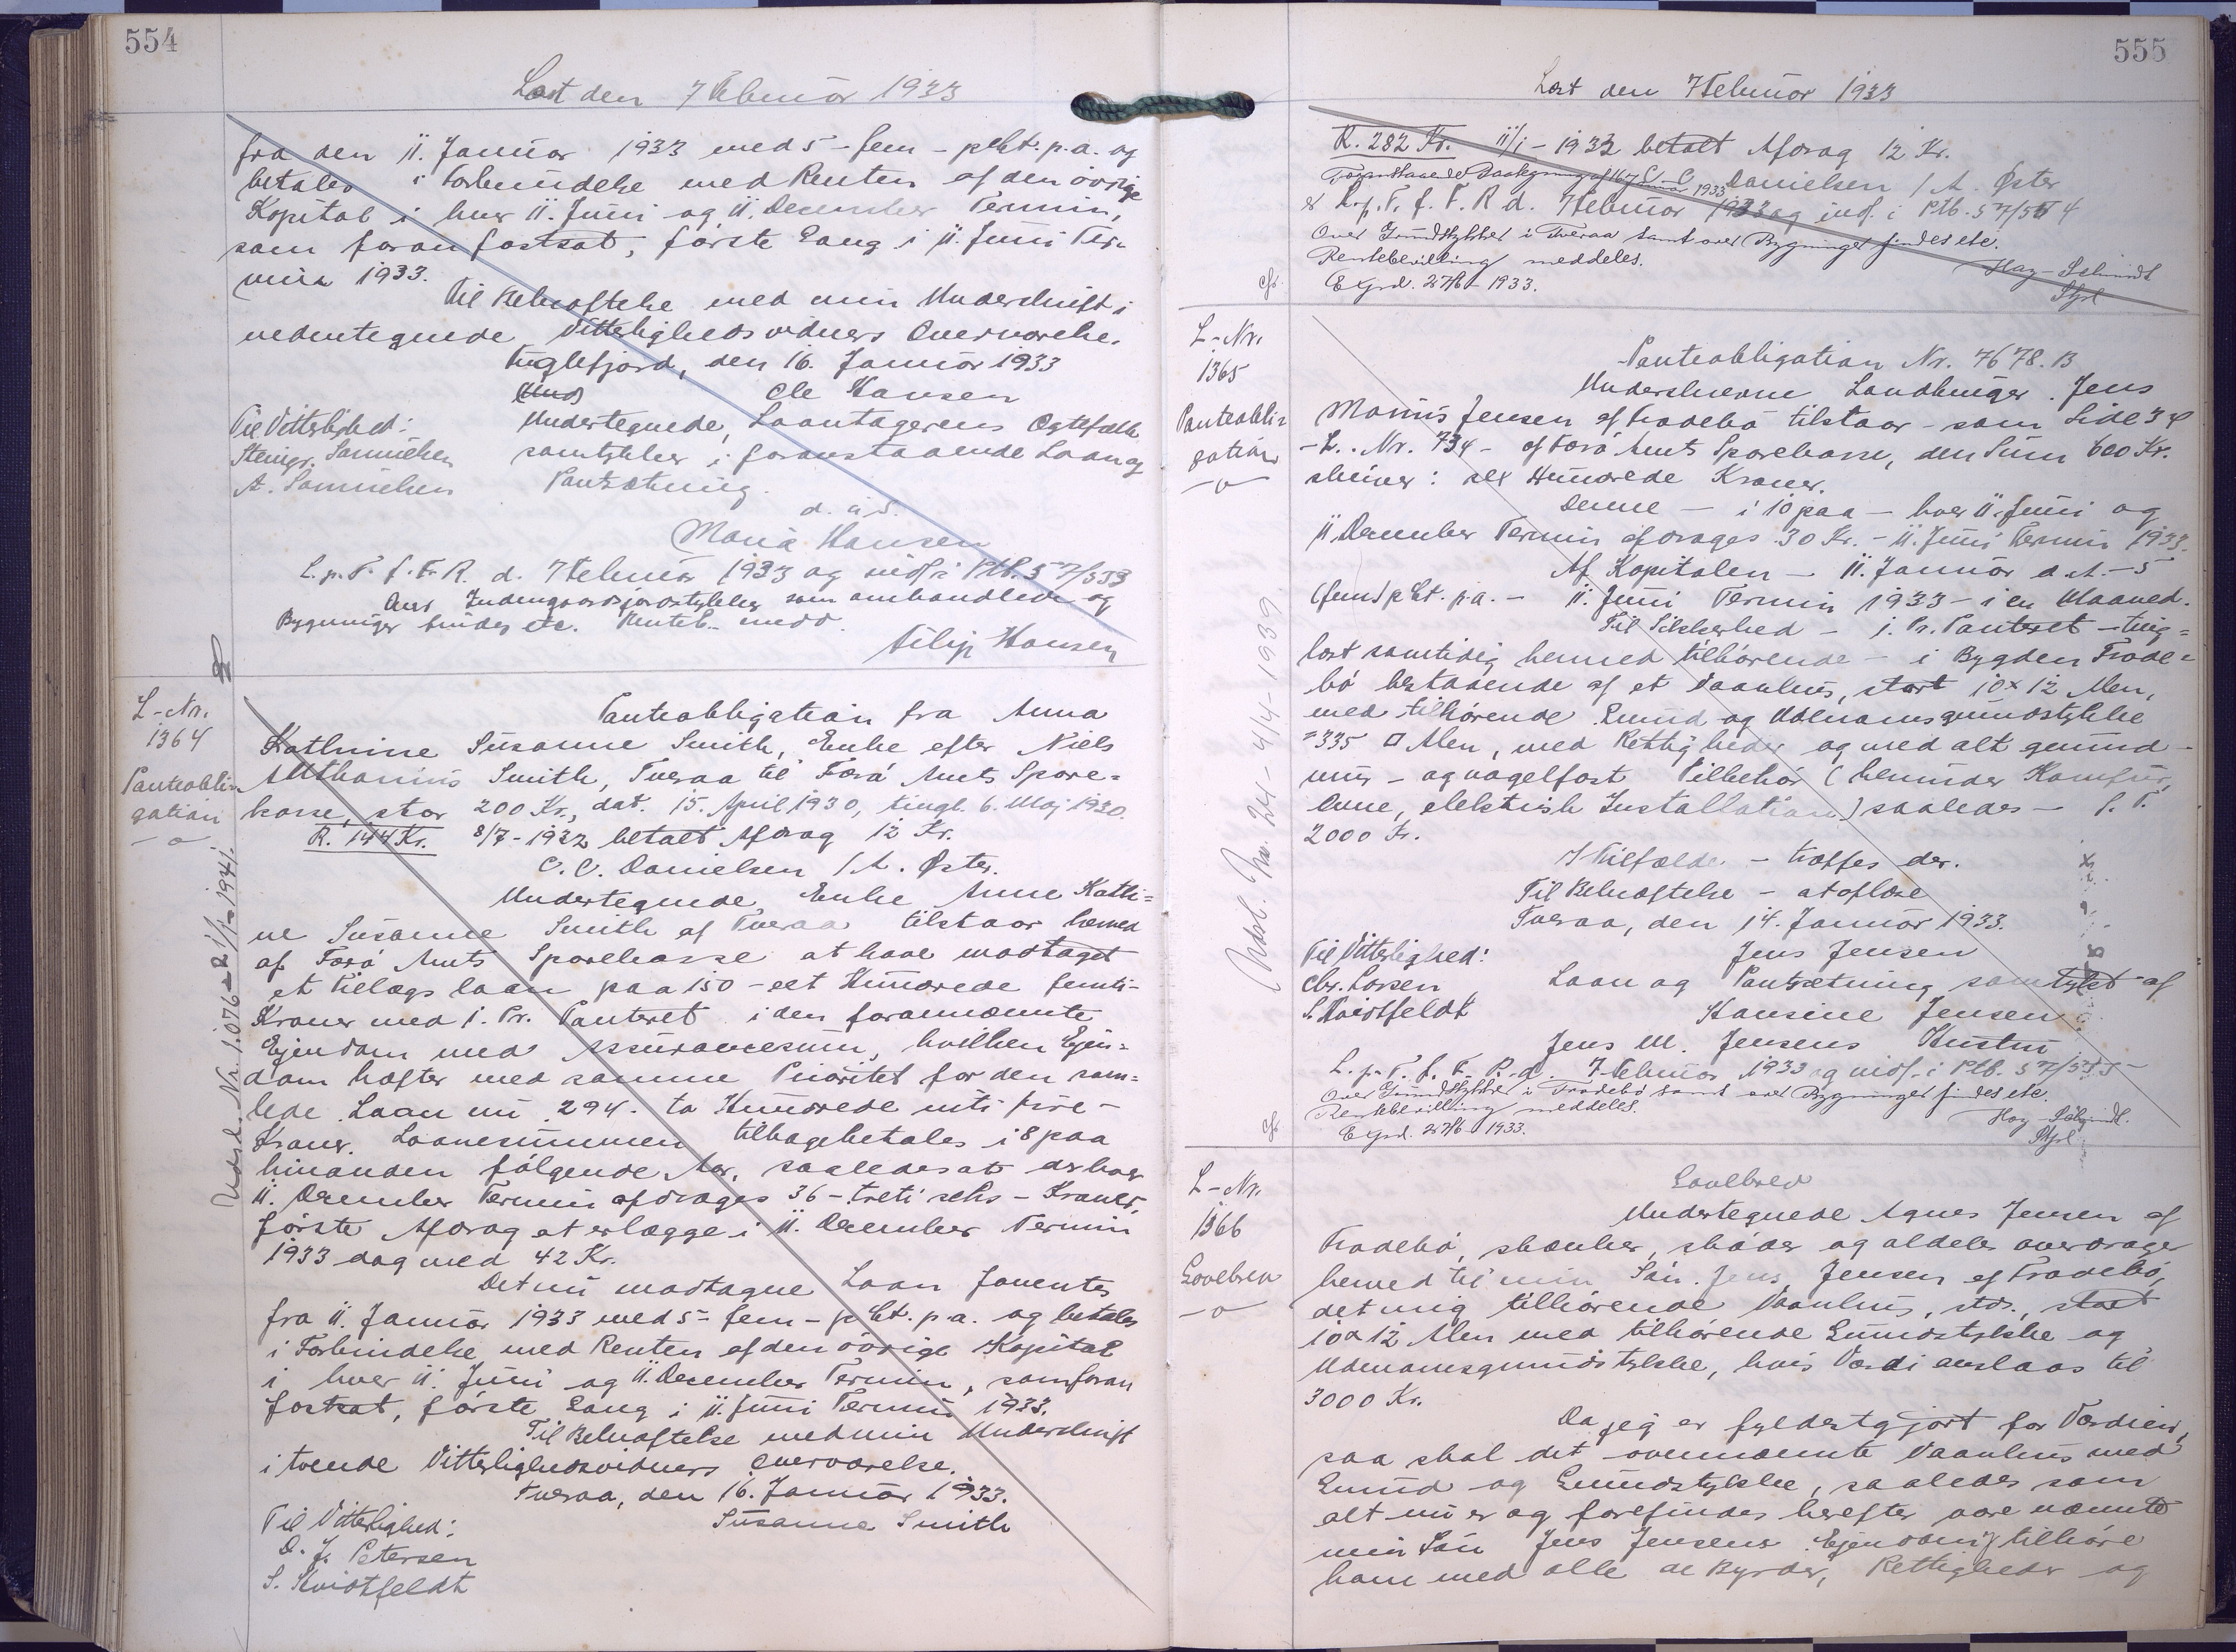 554
Læst den 7 Februar 1933
fra den 11. Januar 1933 med 5 - fem - pCt. p. a. og
betales i Forbindelse med Renten af den øvrige
Kapital i hver 11. Juni og 11. December Termin,
som foran fastsat, første Gang i 11. Juni Ter-
min 1933.
Til Bekræftelse med min Underskrift i
nedentegnede Vitterlighedsvidners Overværelse.
Fuglefjord, den 16. Januar 1933
Ole Hansen
Til Vitterlighed:
Undertegnede, Laantagerens Ægtefælle
Steingr. Samuelsen
samtykker i foranstaaende Laan og
A. Samuelsen
Pantsætning.
d. u. s.
Maria Hansen
L. p. T. f. F. R. d. 7 Februar 1933 og indf. i Ptb. 57/553
Over Indengaardsjordstykker som omhandlede og
Bygninger findes etc. Renteb. medd.
Filip Hansen
L-Nr.
1364
Panteobli-
gation
Udsl. Nr. 1.076 - 21/1 - 1941.
Panteobligation fra Anna
Kathrine Susanne Smith, Enke efter Niels
Smith, Tveraa til Færø Amts Spare=
kasse, stor 200 Kr., dat. 15. April 1930, tingl. 6. Maj 1930.
R. 144 Kr. 8/7 - 1932 betalt Afdrag 12 Kr.
C. C. Danielsen / A. Øster.
Undertegnede Enke Anne Kathri=
ne Susanne Smith af Tveraa tilstaar herved
af Færø Amts Sparekasse at have modtaget
et Tillægslaan paa 150 - eet Hundrede femti-
Kroner med 1. Pr. Panteret i den forannævnte
Ejendom med Assurancesum, hvilken Ejen=
dom hæfter med samme Prioritet for den sam=
lede Laan nu 294. to Hundrede niti fire -
Kroner. Laanesummen tilbagebetales i 8 paa
hinanden følgende Aar, saaledes at der hver
11. December Termin afdrages 36 - treti seks - Kroner,
første Afdrag at erlægge i 11. December Termin
1933 dog med 42 Kr.
Det nu modtagne Laan forrentes
fra 11. Januar 1933 med 5 - fem - pCt. p. a. og betales
i Forbindelse med Renten af den øvrige Kapital
i hver 11. Juni og 11. December Termin, som foran
fastsat, første Gang i 11. Juni Termin 1933.
Til Bekræftelse med min Underskrift
i tvende Vitterlighedsvidners Overværelse.
Tveraa, den 16. Januar 1933.
Til Vitterlighed:
Susanna Smith
D. J. Petersen
S. Kvistfeldt
555
Læst den 7 Februar 1933
R. 282 Kr. 11/1 - 1933 betalt Afdrag 12 Kr.
Foranstaaende Paategning af 16 Januar 1933 C. C. Danielsen / A. Øster
er L. p. T. f. F. R. d. 7 Februar 1933 og indf. i Ptb. 57/554
Over Grundstykket i Tveraa samt over Bygninger findes etc.
Rentebevilling meddeles.
E Grd. 27/6 - 1933.
Hay-Schmidt
L-Nr.
1365
Panteobli=
gation
Udsl. Nr. 24 - 4/4 - 1939
Panteobligation Nr. 7678. B
Underskrevne Landbruger Jens
Marius Jensen af Fradebø tilstaar - som Side 34
- L. Nr. 734 - af Færø Amts Sparekasse, den Sum 600 Kr.
skriver: sex Hundrede Kroner.
Denne - i 10 paa - hver 11. Juni og
11 December Termin afdrages 30 Kr. - 11. Juni Termin 1933.
Af Kapitalen - 11. Januar d. A. - 5
(fem) pCt. p. a. - 11. Juni Termin 1933 - i en Maaned.
Til Sikkerhed - 1. Pr. Panteret - ting=
læst samtidig hermed tilhørende - i Bygden Frode=
bø bestaaende af et Vaanhus, stort 10 x 12 Alen,
med tilhørende Grund og Udmarksgrundstykke
= 335 □ Alen, med Rettigheder og med alt grund-
mur - og nagelfast Tilbehør (herunder Komfur,
Ovne, elektrisk Installation) saaledes - f. T.
2000 Kr.
I Tilfælde - træffes der.
Til Bekræftelse - at oplæse
Tveraa, den 14. Januar 1933.
Til Vitterlighed:
Jens Jensen
Chr. Larsen
Laan og Pantsætning samtykt af
S. Kvistfeldt
Hansine Jensen
Jens M. Jensens Hustru
L. p. T. f. F. R. d. 7 Februar 1933 og indf. i Ptb. 57/555 -
Over Grundstykket i Frodebø samt over Bygninger findes etc.
Rentebevilling meddeles.
E Grd. 27/6 1933.
Hay-Schmidt.
L-Nr.
1366
Gavebrev
Gavebrev
Undertegnede Agnes Jensen af
Frodebø, skænker, skøder og aldeles overdrager
herved til min Søn Jens Jensen af Frodebø,
det mig tilhørende Vaanhus, sto., stort
10 x 12 Alen med tilhørende Grundstykke og
Udmarksgrundstykke, hvis Værdi anslaas til
3000 Kr.
Da jeg er fyldestgjort for Værdien,
saa skal det ovennævnte Vaanhus med
Grund og Grundstykke, saaledes som
alt nu er og forefindes herefter være nævnte
min Søn Jens Jensens Ejendom, tilhøre
ham med alle de Byrder, Rettigheder og